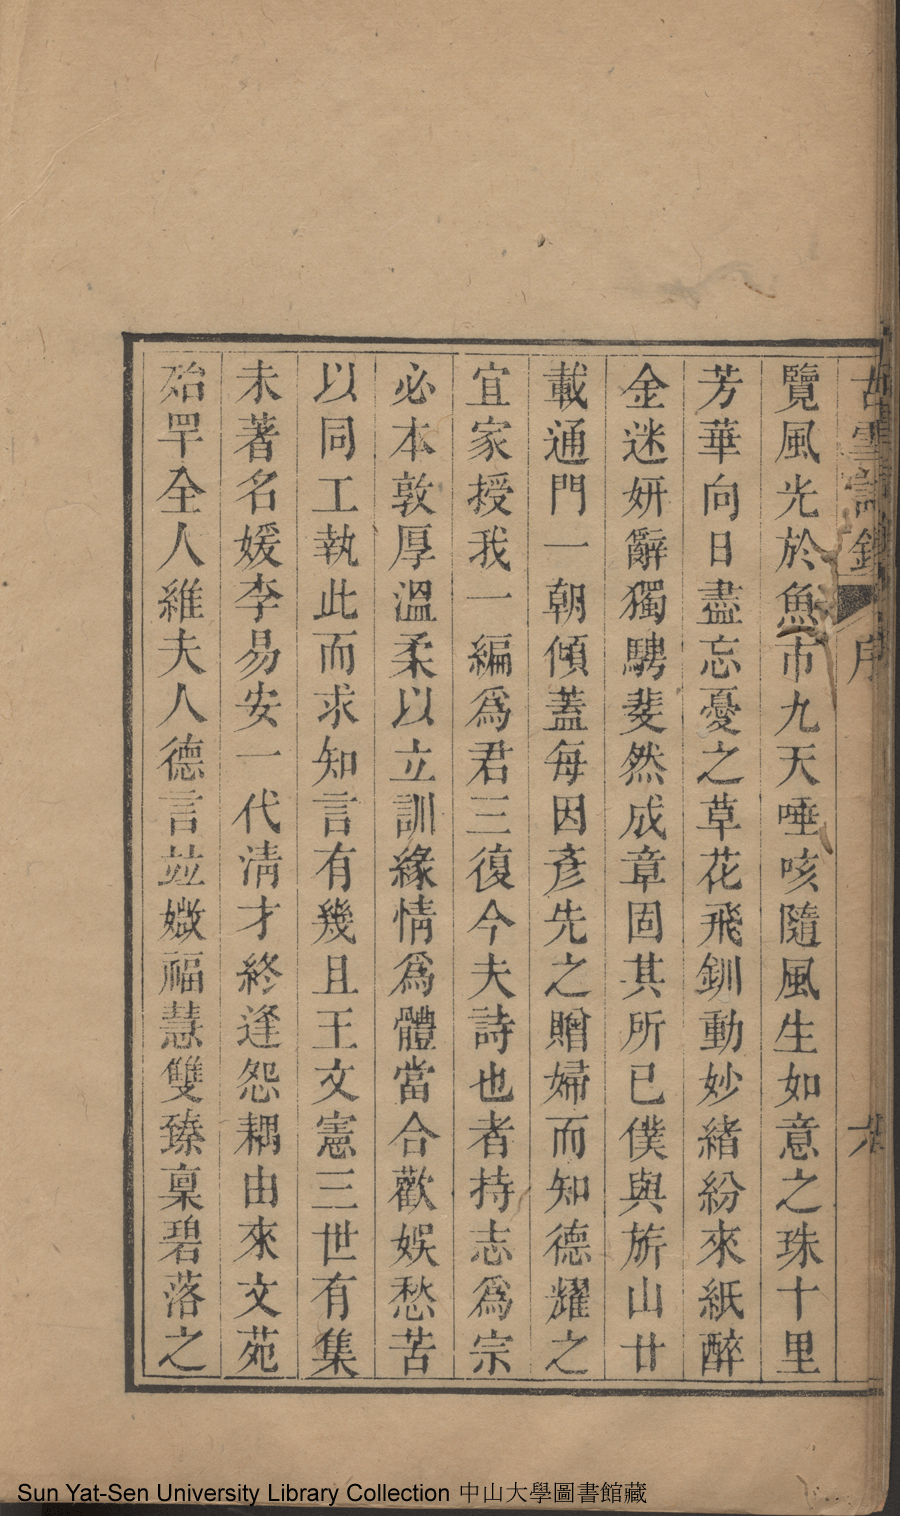 古雪詩鈔 序 六
覽風光於魚市九天唾咳隨風生如意之珠十里
芳華向日盡忘憂之草花飛釧動妙緒紛來紙醉
金迷妍辭獨騁斐然成章固其所已僕與旂山廿
載通門一朝傾蓋每因彥先之贈婦而知德耀之
宜家授我一編爲君三復今夫詩也者持志爲宗
必本敦厚溫柔以立訓緣情爲體當合歡娛愁苦
以同工執此而求知言有幾且王文憲三世有集
未著名媛李易安一代淸才終逢怨耦由來文苑
殆罕全人維夫人德言竝媺福慧雙臻稟碧落之
Sun Yat-Sen University Library Collection 中山大學圖書館藏